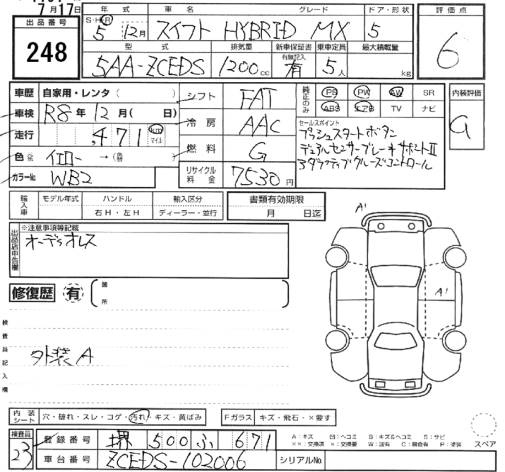 7月17日
出品番号
248
年式 車名 グレード ドア・形状
S・H・R 5年 12月 スイフト HYBRID MX 5
型式 排気量 新車保証書 乗車定員 最大積載量
有無記入
5AA-ZCEDS 1200cc 有 5人 kg
評価点
6
車歴 自家用・レンタ( )
車検 R8年12月( 日)
走行 ,471 km マイル
色 イエロー
カラーNo WB2
シフト FAT
冷房 AAC
燃料 G
リサイクル料金 7530円
純正のみ PS PW AW SR
ABS エアB TV ナビ
セールスポイント
プッシュスタートボタン
デュアルセンサーブレーキサポートⅡ
アダプティブクルーズコントロール
内装評価
輸入車 モデル年式 ハンドル 輸入区分
右H・左H ディーラー・並行
書類有効期限
月 日迄
出品店申告欄 ※注意事項等記載
オーディオレス
修復歴 有 箇所
検査員記入欄
外装A
A'
A'
内装シート 穴・破れ・スレ・コゲ・汚れ・キズ・黄ばみ
Fガラス キズ・飛石・×要す
検査員 23
登録番号 堺 500 ふ 671
車台番号 ZCEDS-102006 シリアルNo
A:キズ U:ヘコミ B:キズ&ヘコミ S:サビ
XX:交換済 X:要交換 W:波有 C:腐食有 P:塗装
スペア